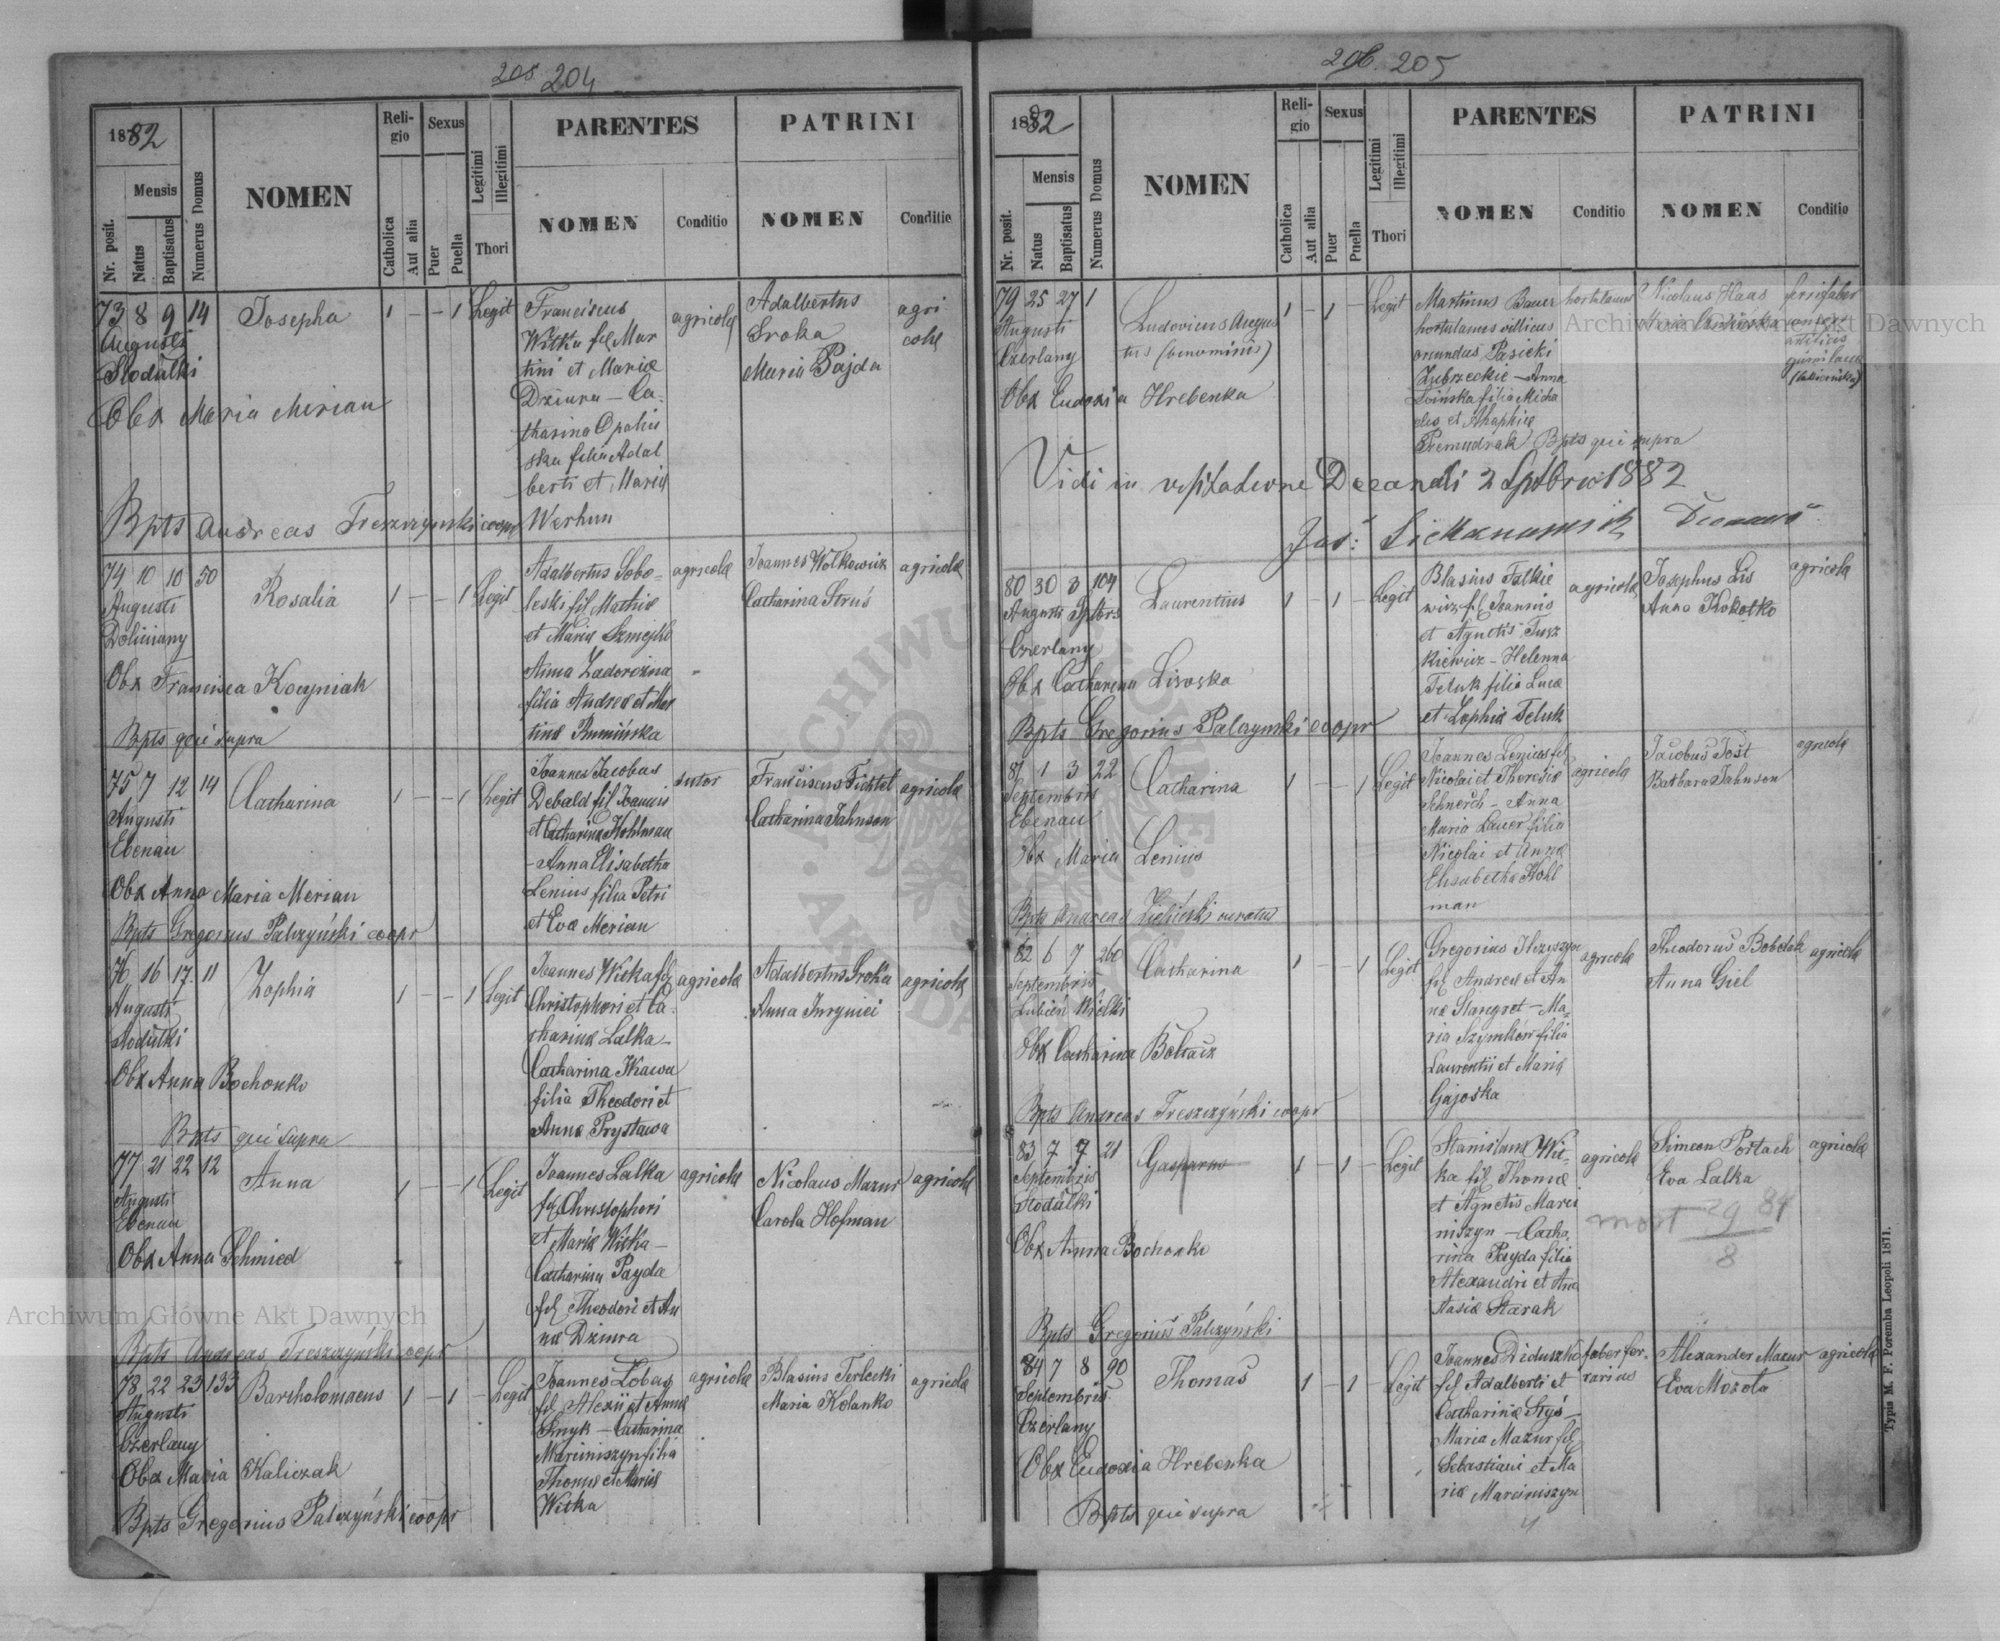 205 204
1882
Nr. posit.
Mensis
Natus
Baptisatus
Numerus Domus
NOMEN
Religio
Catholica
Aut alia
Sexus
Puer
Puella
Legitimi
Illegitimi
Thori
PARENTES
NOMEN
Conditio
PATRINI
NOMEN
Conditio
73 8 9 14 Josepha 1 – – 1 Legit
Augusti
Stodulki
Obx Maria Merian
Franciscus
Witka fil Mar
tini et Mariæ
Dziura – Ca-
tharina Opaliń
ska filia Adal
berti et Mariæ
Werhun
agricolæ
Adalbertus
Sroka
Maria Pajda
agri
colæ
Bpts Andreas Treszczyński coopr
74 10 10 50 Rosalia 1 – – 1 Legit
Augusti
Doliniany
Obx Francisca Kocyniak
Bpts qui supra
Adalbertus Sobo-
leski fil Mathiæ
et Mariæ
Anna Zadorożna
filia Andreæ et Mar
tinæ Rumińska
agricolæ
Joannes Wolkowicz
Catharina Struś
agricolæ
75 7 12 14 Catharina 1 – – 1 Legit
Augusti
Ebenau
Obx Anna Maria Merian
Bpts Gregorius Palczyński coopr
Joannes Jacobus
Debald fil Joannis
et Catharinæ Kohlman
– Anna Elisabetha
Lenius filia Petri
et Evæ Merian
sutor
Franciscus Fichtel
Catharina Jahnson
agricolæ
76 16 17 11 Zophia 1 – – 1 Legit
Augusti
Stodulki
Obx Anna Bochonko
Bpts qui supra
Joannes Witka fil
Christophori et Ca-
tharinæ Lalka –
Catharina Kawa
filia Theodori et
Annæ Prystawa
agricolæ
Adalbertus Sroka
Anna
agricolæ
77 21 22 12 Anna 1 – – 1 Legit
Augusti
Ebenau
Obx Anna Schmied
Bpts Andreas Treszczyński coopr
Joannes Lalka
fil Christophori
et Mariæ Witka –
Catharina Payda
fil Theodori et An
næ Dziura
agricolæ
Nicolaus Mazur
Carola Hofman
agricolæ
78 22 23 133 Bartholomaeus 1 – 1 – Legit
Augusti
Czerlany
Obx Maria Kaliczak
Bpts Gregorius Palczyński coopr
Joannes Lobas
fil Alexii et Annæ
Smyk – Catharina
Marciniszyn filia
Thomæ et Mariæ
Witka
agricolæ
Blasius Terlecki
Maria Kolanko
agricolæ
206 205
1882
Nr. posit.
Mensis
Natus
Baptisatus
Numerus Domus
NOMEN
Religio
Catholica
Aut alia
Sexus
Puer
Puella
Legitimi
Illegitimi
Thori
PARENTES
NOMEN
Conditio
PATRINI
NOMEN
Conditio
79 25 27 1 Ludovicus Augus 1 – 1 – Legit
tus (binominis)
Augusti
Czerlany
Obx Eudoxia Hrebenka
Martinus Bauer
hortulanus villicus
oriundus Pasieki
Zubrzeckie – Anna
Łoińska filia Micha
elis et Ahaphiæ
Premudrak Bpts qui supra
hortulanus
Nicolaus Haas
Vidi in visitatione Decanali 2 Sptbris 1882
80 30 3 104 Laurentius 1 – 1 – Legit
Augusti Sptbrs
Czerlany
Obx Catharina Lisoska
Bpts Gregorius Palczynski coopr
Blasius Falkie
wicz fil Joannis
et Agnetis Tusz
kiewicz – Helenna
Teluk filia Lucæ
et Zophiæ Teluk
agricolæ
Josephus Lis
Anna Kokotko
agricolæ
81 1 3 22 Catharina 1 – – 1 Legit
Septembris
Ebenau
Obx Maria Lenius
Bpts Andreas curatus
Joannes Lenius fil
Nicolai et Theresiæ
Schnerch – Anna
Maria Lauer filia
Nicolai et Annæ
Elisabetha Kohl
man
agricolæ
Jacobus Jost
Barbara Jahnson
agricolæ
82 6 7 260 Catharina 1 – – 1 Legit
Septembris
Lubień Wielki
Obx Catharina
Bpts Andreas Treszczyński coopr
Gregorius
fil Andreæ et An
næ Stangret – Ma-
ria Szymków filia
Laurentii et Mariæ
Gajoska
agricolæ
Theodorus Bobelak
Anna Giel
agricolæ
83 7 7 21 Gasparus 1 – 1 – Legit
Septembris
Stodulki
Obx Anna Bochonko
Bpts Gregorius Palczyński
Stanislaus Wit-
ka fil Thomæ
et Agnetis Marci
niszyn – Catha-
rina Payda filia
Alexandri et Ana
stasiæ Starak
agricolæ
Simeon Portach
Eva Lalka
agricolæ
mort 29 84
8
84 7 8 90 Thomas 1 – 1 – Legit
Septembris
Czerlany
Obx Eudoxia Hrebenka
Bpts qui supra
Joannes Diduszko
fil Adalberti et
Catharinæ Stryś –
Maria Mazur fil
Sebastiani et Ma
riæ Marciniszyn
faber fer-
rarius
Alexander Mazur
Eva Mozola
agricolæ
Typis M. F. Poremba Leopoli 1871.
Archiwum Główne Akt Dawnych
Archiwum Główne Akt Dawnych